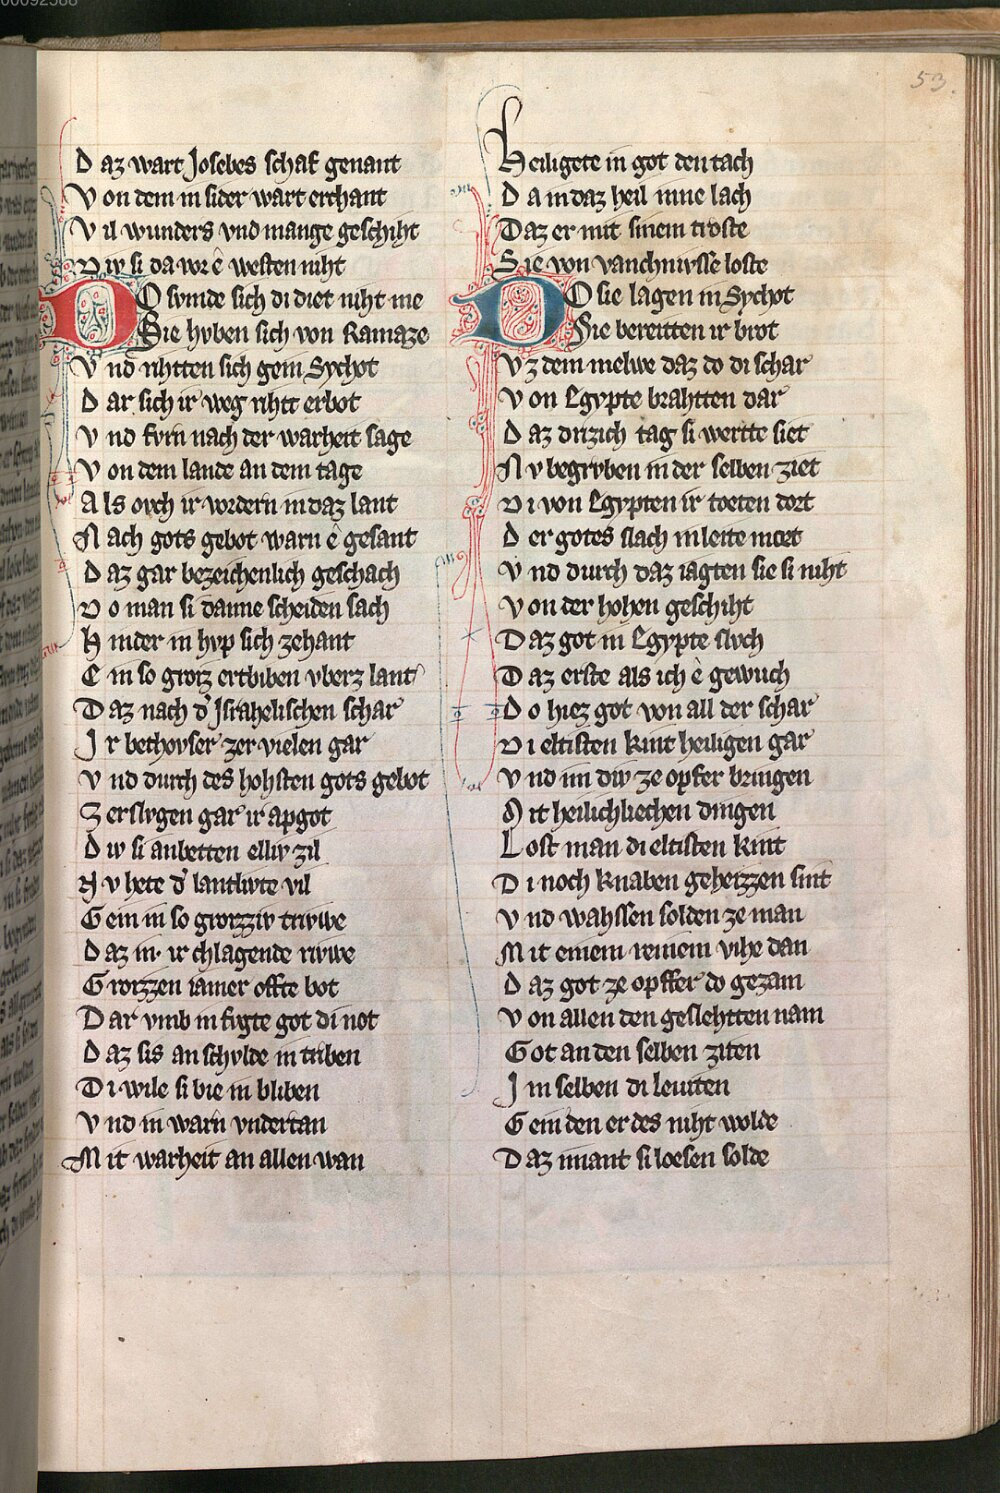 00092588
53.
Daz wart Josebes schaf genant
Von dem in sider wart erchant
Vil wunders vnd mange geschiht
Div si da vor ê westen niht
DO svmde sich di diet niht me
Sie hvben sich von Ramaze
Vnd rihtten sich gein Sychot
Dar sich ir weg rihtt erbot
Vnd fvrn nach der warheit sage
Von dem lande an dem tage
Als ovch ir vordern in daz lant
Nach gots gebot warn ê gesant
Daz gar bezeichenlich geschach
Do man si danne scheiden sach
Hinder in hvp sich zehant
Ein so groz ertbiben vberz lant
Daz nach d' Jsrahelischen schar
Jr bethovser zer vielen gar
Vnd durch des hohsten gots gebot
Zerslvgen gar ir apgot
Div si anbetten elliv zil
Nv hete d' lantlivte vil
Gein in so grozziv trivwe
Daz in ir chlagende rivwe
Grozzen iamer offte bot
Dar vmb in fvgte got di not
Daz sis an schvlde in triben
Di wile si bie in bliben
Vnd in warn vndertan
Mit warheit an allen wan
Heiligete in got den tach
Da in daz heil inne lach
Daz er mit sinem troste
Sie von vanchnivsse loste
DO sie lagen in Sychot
Sie bereitten ir brot
Vz dem melwe daz do di schar
Von Egypte brahtten dar
Daz drizich tag si wertte siet
Nv begrvben in der selben ziet
Di von Egypten ir toeten dort
Der gotes slach in leite mort
Vnd durch daz iagten sie si niht
Von der hohen geschiht
Daz got in Egypte slvch
Daz erste als ich ê gewuch
Do hiez got von all der schar
Di eltisten kint heiligen gar
Vnd im div ze opfer bringen
Mit heilichliechen dingen
Lost man di eltisten kint
Di noch knaben geheizzen sint
Vnd wahssen solden ze man
Mit einem reinem vihe dan
Daz got ze opffer do gezam
Von allen den geslehtten nam
Got an den selben ziten
Jm selben di leuiten
Gein den er des niht wolde
Daz imant si loesen solde